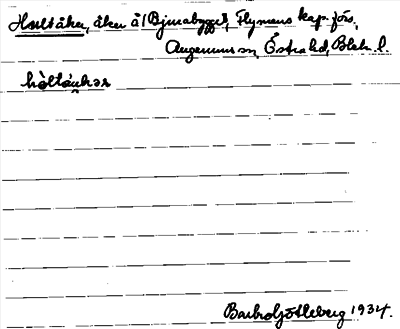 Hultåker, åker å (Bjurabygget, Flymens kap.förs,
Augerums sn, Östra hd, Blek. l.
håltåukər
Barbro Götleborg 1934.